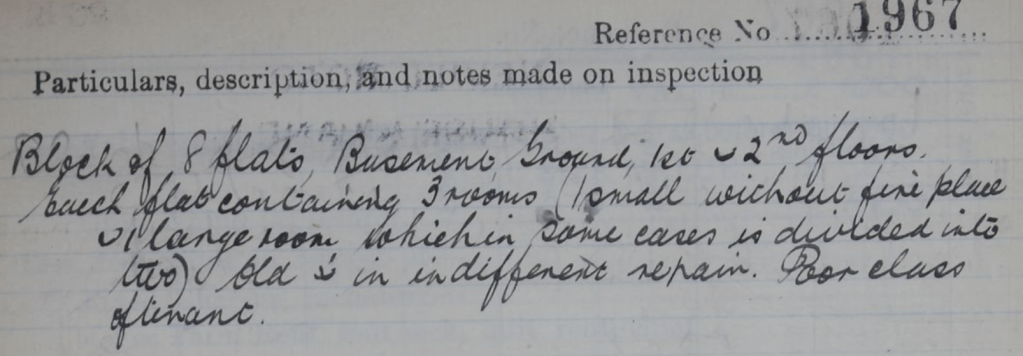 Reference No 1967
Particulars, description, and notes made on inspection
Block of 8 flats, Basement, Ground, 1st & 2nd floors.
Each flat containing 3 rooms (1 small without fire place
& 1 large room which in some cases is divided into
two) Old & in indifferent repain. Poor class
of tenant.